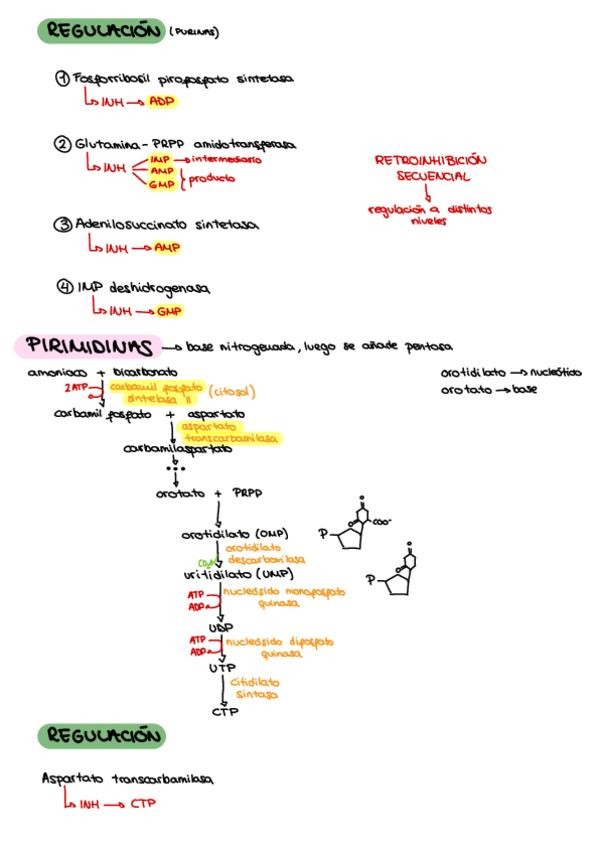 REGULACIÓN (PURINAS)
① Fosforribosil pirofosfato sintetasa
INH → ADP
② Glutamina - PRPP amidotransferasa
INH
IMP → intermediario
AMP
GMP
producto
RETROINHIBICIÓN
SECUENCIAL
regulación a distintos
niveles
③ Adenilosuccinato sintetasa
INH → AMP
④ IMP deshidrogenasa
INH → GMP
PIRIMIDINAS → base nitrogenada, luego se añade pentosa
amoniaco + bicarbonato
2ATP
carbamil fosfato
sintetasa II
(citosol)
orotidilato → nucleótido
orotato → base
carbamil fosfato + aspartato
aspartato
transcarbamilasa
carbamilaspartato
orotato + PRPP
orotidilato (OMP)
orotidilato
descarboxilasa
uritidilato (UMP)
P
COO-
P
ATP
ADP
nucleósido monofosfato
quinasa
UDP
ATP
ADP
nucleósido difosfato
quinasa
UTP
citidilato
sintasa
CTP
REGULACIÓN
Aspartato transcarbamilasa
INH → CTP